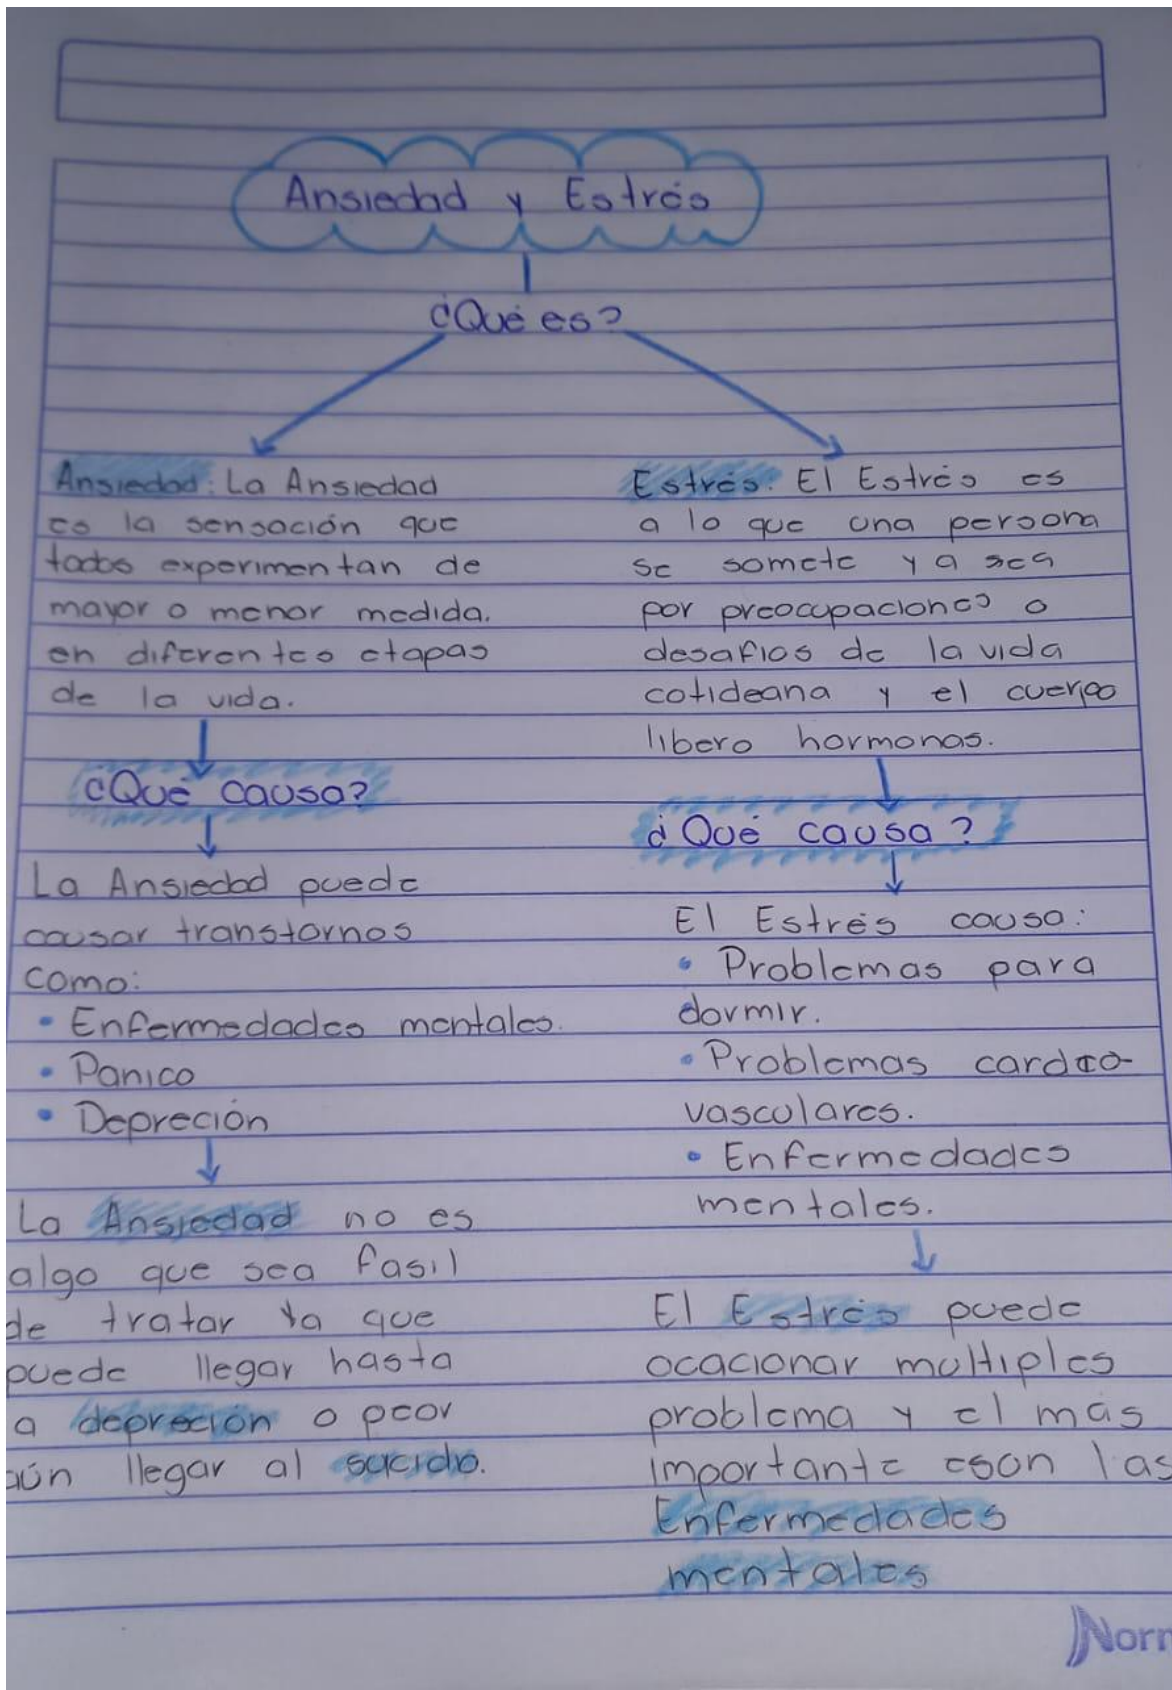 Ansiedad y Estrés
¿Qué es?
Ansiedad: La Ansiedad
es la sensación que
todos experimentan de
mayor o menor medida.
en diferentes etapas
de la vida.
¿Qué causa?
La Ansiedad puede
causar transtornos
como:
• Enfermedades mentales.
• Panico
• Depreción
La Ansiedad no es
algo que sea fasil
de tratar ya que
puede llegar hasta
a depreción o peor
aún llegar al sucido.
Estrés: El Estrés es
a lo que una persona
se somete ya sea
por preocupaciones o
desafios de la vida
cotideana y el cuerpo
libero hormonas.
¿Qué causa?
El Estrés causa:
• Problemas para
dormir.
• Problemas cardio-
vasculares.
• Enfermedades
mentales.
El Estrés puede
ocacionar multiples
problema y el más
importante eson las
Enfermedades
mentales
Norm